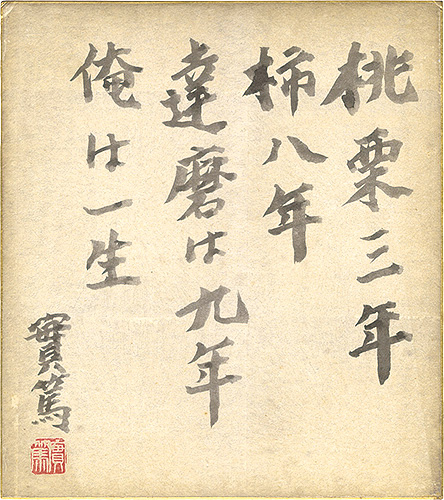 桃栗三年
柿八年
達磨は九年
俺は一生
實篤
實篤